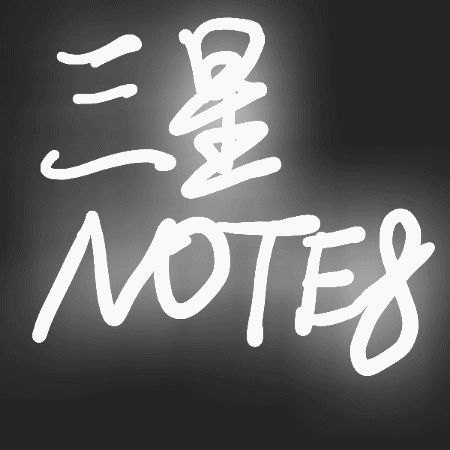 三星
NOTE8